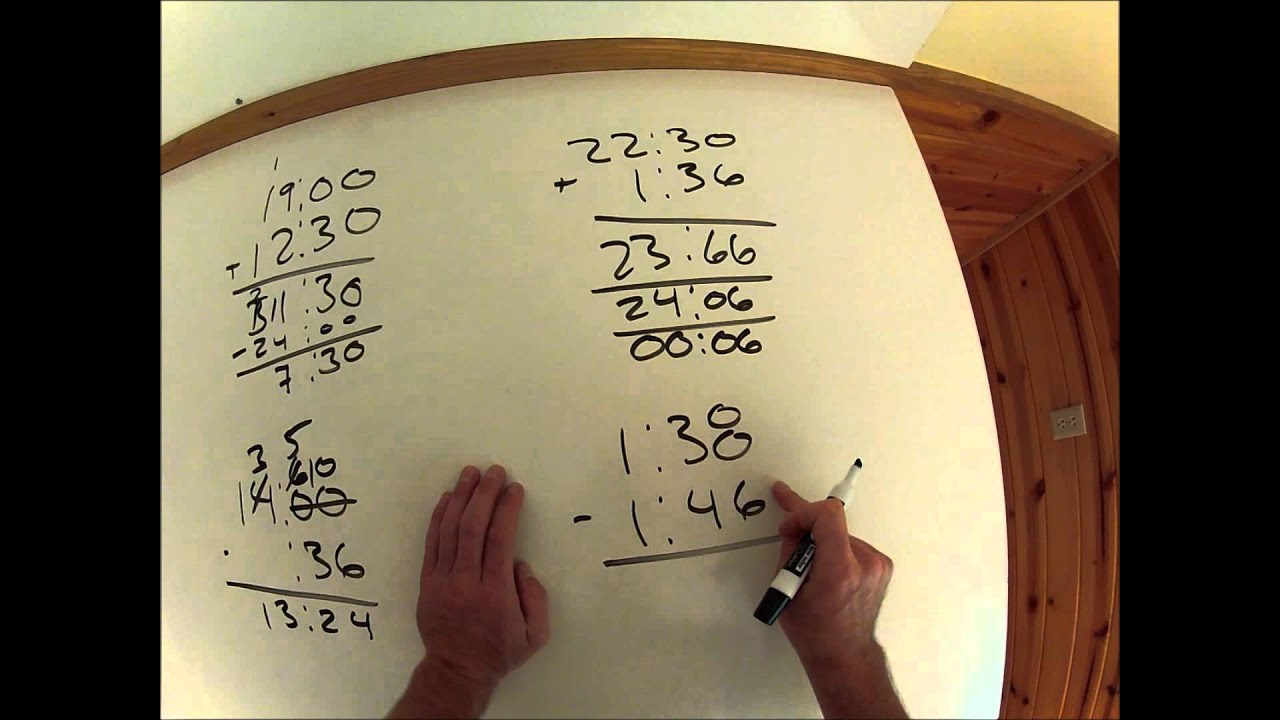 1
19:00
+12:30
311:30
-24:00
7:30
22:30
+ 1:36
23:66
24:06
00:06
3 5
610
14:00
:36
13:24
1:30
- 1:46